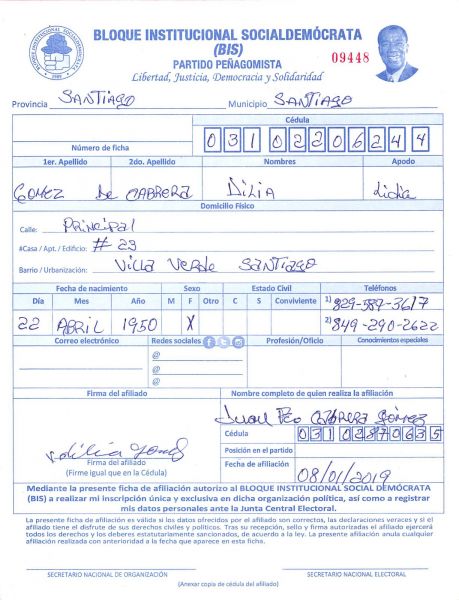 BLOQUE INSTITUCIONAL SOCIALDEMÓCRATA
(BIS)
PARTIDO PEÑAGOMISTA
09448
Libertad, Justicia, Democracia y Solidaridad
Provincia SANTIAGO Municipio SANTIAGO
Cédula
Número de ficha 03102206244
1er. Apellido 2do. Apellido Nombres Apodo
GOMEZ De CABRERA DILIA Lidia
Domicilio Físico
Calle: Principal
#Casa / Apt. / Edificio: # 23
Barrio / Urbanización: Villa Verde SANTIAGO
Fecha de nacimiento Sexo Estado Civil Teléfonos
Día Mes Año M F Otro C S Conviviente 1) 829-387-3617
22 ABRIL 1950 X 2) 849-290-2622
Correo electrónico Redes sociales Profesión/Oficio Conocimientos especiales
@
@
@
Firma del afiliado Nombre completo de quien realiza la afiliación
Juan Fco CABRERA Gómez
Cédula 03102870635
Firma del afiliado
(Firme igual que en la Cédula)
Posición en el partido
Fecha de afiliación 08/01/2019
Mediante la presente ficha de afiliación autorizo al BLOQUE INSTITUCIONAL SOCIAL DEMÓCRATA
(BIS) a realizar mi inscripción única y exclusiva en dicha organización política, así como a registrar
mis datos personales ante la Junta Central Electoral.
La presente ficha de afiliación es válida si los datos ofrecidos por el afiliado son correctos, las declaraciones veraces y si el
afiliado tiene el disfrute de sus derechos civiles y políticos. Tras su recepción, sello y firma autorizadas el afiliado ejercerá
todos los derechos y los deberes estatutariamente sancionados, de acuerdo a la ley. La presente afiliación anula cualquier
afiliación realizada con anterioridad a la fecha que aparece en esta ficha.
SECRETARIO NACIONAL DE ORGANIZACIÓN SECRETARIO NACIONAL ELECTORAL
(Anexar copia de cédula del afiliado)